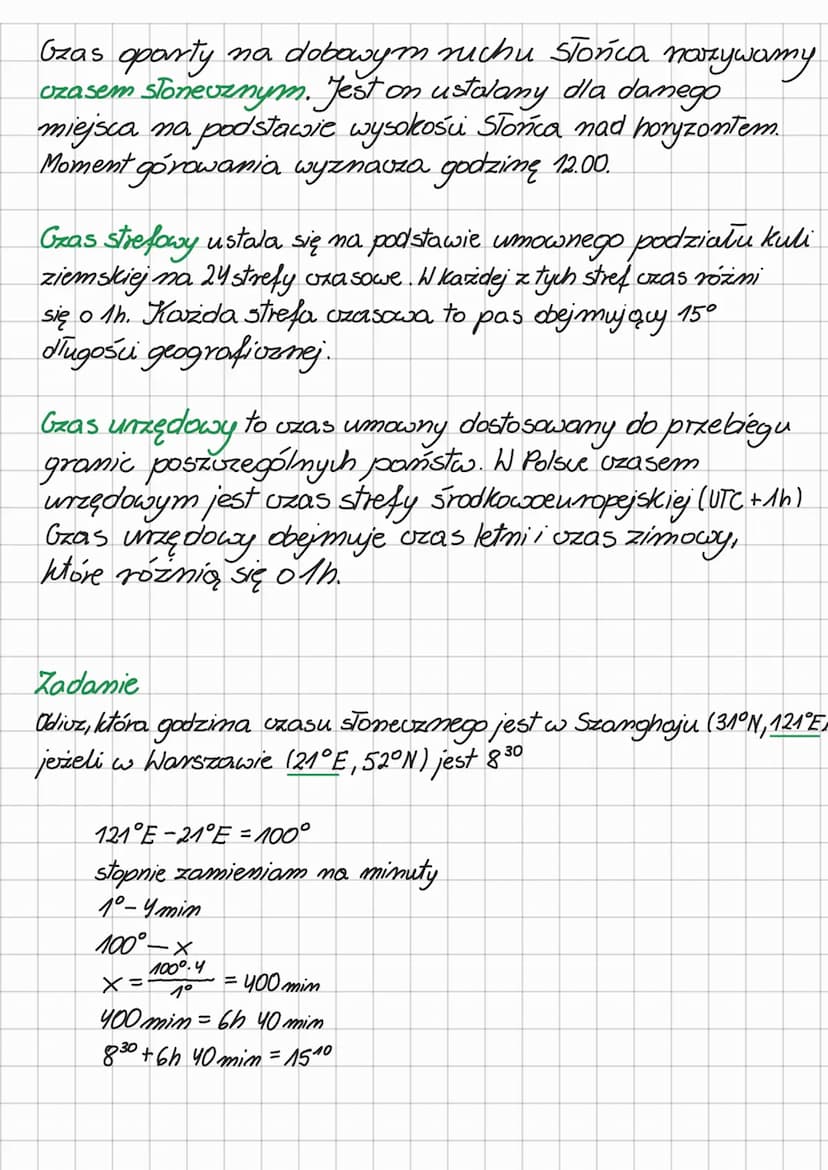 Czas oparty na dobowym ruchu Słońca nazywamy
czasem słonecznym. Jest on ustalany dla danego
miejsca na podstawie wysokości Słońca nad horyzontem.
Moment górowania wyznacza godzinę 12.00.
Czas strefowy ustala się na podstawie umownego podziału kuli
ziemskiej na 24 strefy czasowe. W każdej z tych stref czas różni
się o 1h. Każda strefa czasowa to pas obejmujący 15°
długości geograficznej.
Czas urzędowy to czas umowny dostosowany do przebiegu
granic poszczególnych państw. W Polsce czasem
urzędowym jest czas strefy środkowoeuropejskiej (UTC +1h)
Czas urzędowy obejmuje czas letni i czas zimowy,
które różnią się o 1h.
Zadanie
Oblicz, która godzina czasu słonecznego jest w Szanghaju (31°N, 121°E,
jeżeli w Warszawie (21°E, 52°N) jest 8³⁰
121°E - 21°E = 100°
stopnie zamieniam na minuty
1° - 4min
100° - x
x = 100°·4 / 1° = 400 min
400 min = 6h 40 min
8³⁰ + 6h 40 min = 15¹⁰